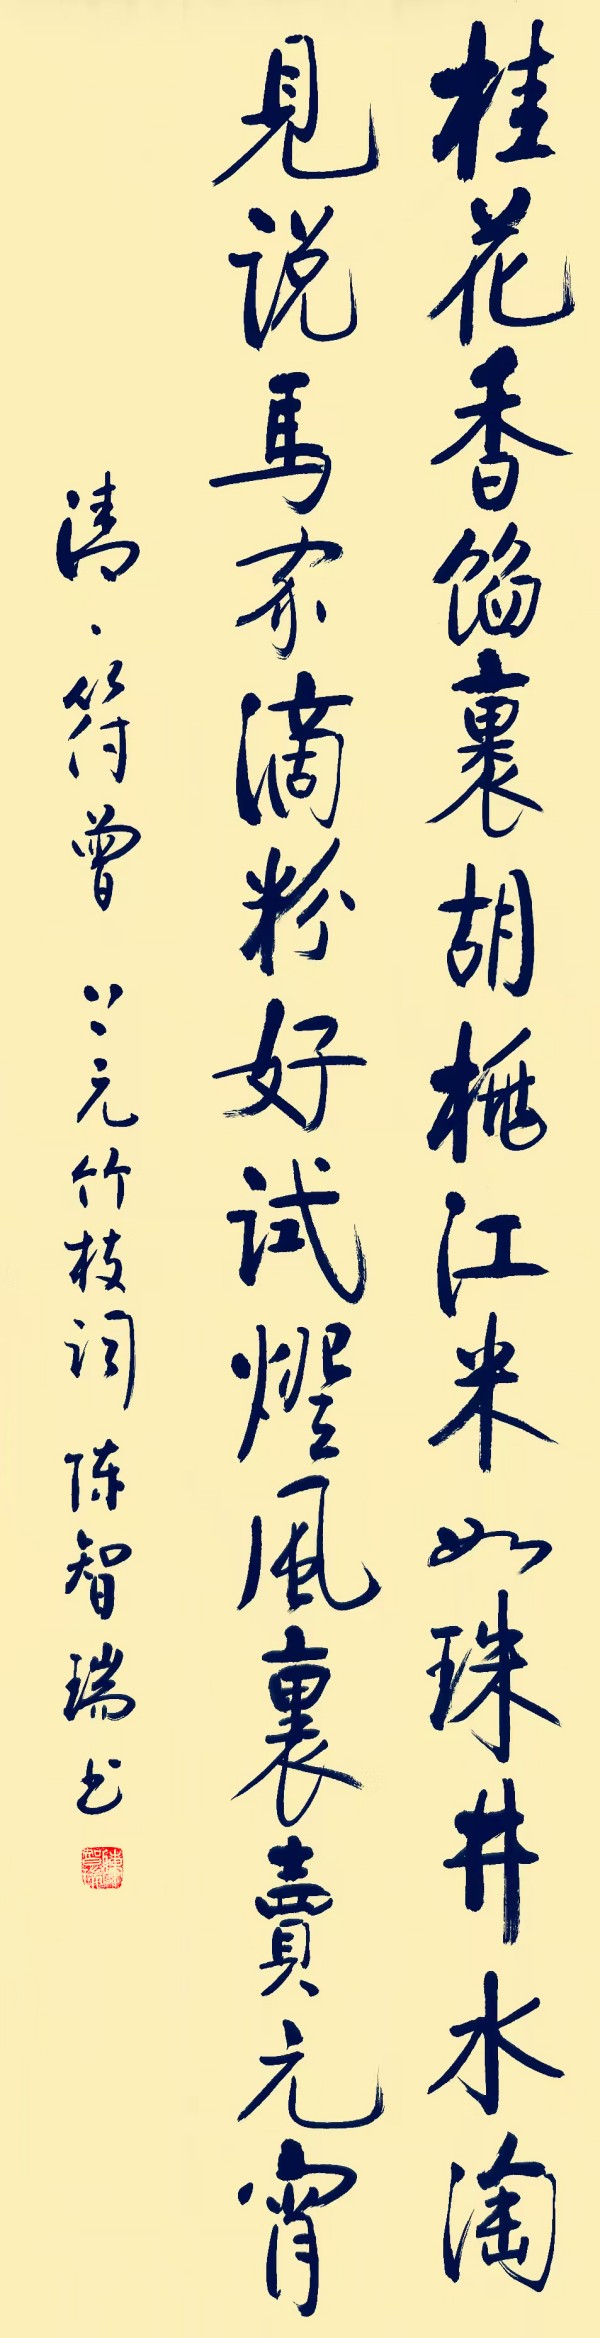 桂花香馅裹胡桃江米如珠井水淘
見说馬家滴粉好试燈風裏賣元宵
清、符曾 上元竹枝词 陈智瑞书